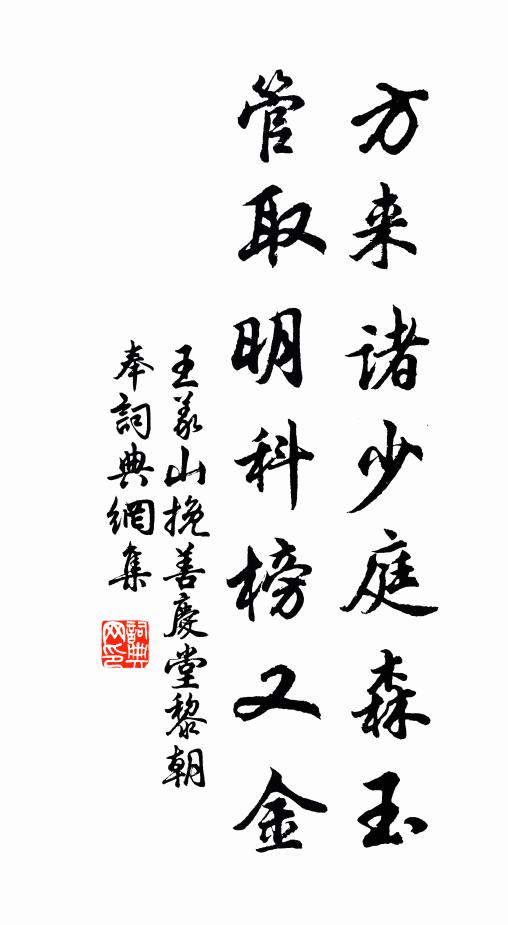 方来诸少庭森玉
管取明科榜又金
王義山挽善慶堂黎朝
奉詞典網集
詞典网印